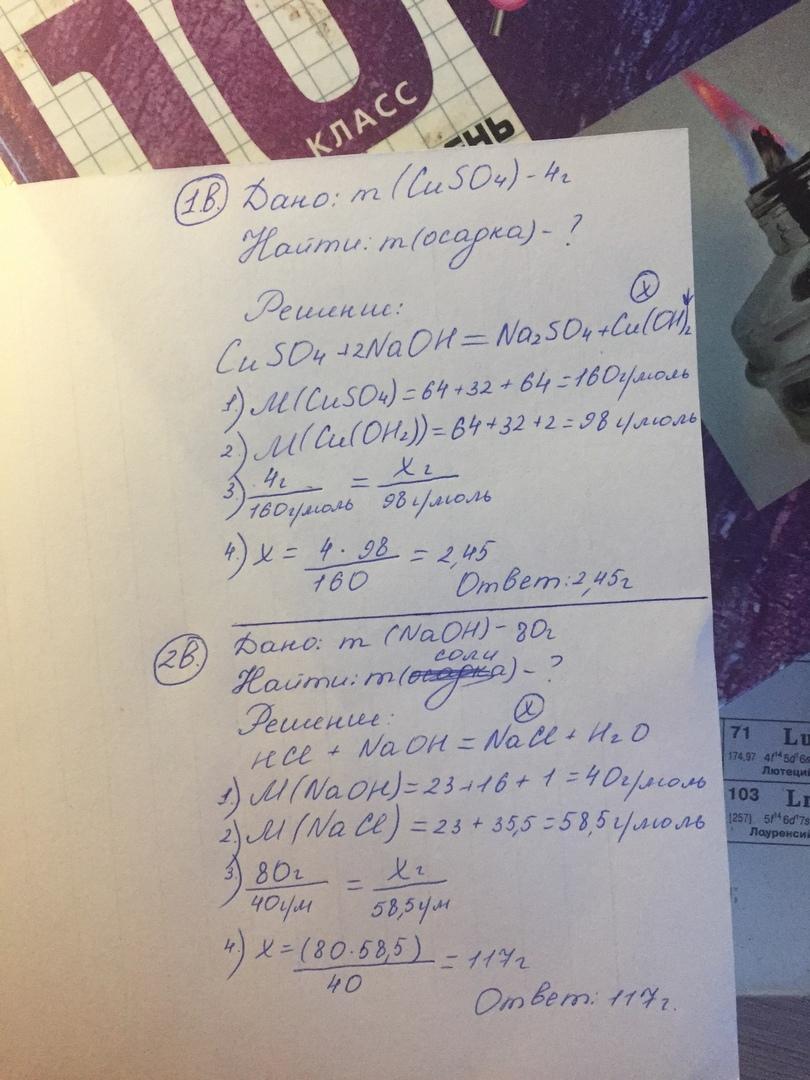 10
КЛАСС
ЕНЬ
1В. Дано: m (CuSO4) - 4г
Найти: m(осадка) - ?
Решение:
x
CuSO4 + 2NaOH = Na2SO4 + Cu(OH)2↓
1) M(CuSO4) = 64 + 32 + 64 = 160 г/моль
2) M(Cu(OH2)) = 64 + 32 + 2 = 98 г/моль
3) 4г / 160 г/моль = Xг / 98 г/моль
4) X = 4 · 98 / 160 = 2,45
Ответ: 2,45г
2В. Дано: m (NaOH) - 80г
соли
Найти: m(осадка) - ?
Решение:
x
HCl + NaOH = NaCl + H2O
1) M(NaOH) = 23 + 16 + 1 = 40 г/моль
2) M(NaCl) = 23 + 35,5 = 58,5 г/моль
3) 80г / 40 г/м = Xг / 58,5 г/м
4) X = (80 · 58,5) / 40 = 117г
Ответ: 117г.
71 Lu
174,97 4f¹⁴5d¹6s
Лютеций
103 Lr
[257] 5f¹⁴6d¹7s
Лоуренсий